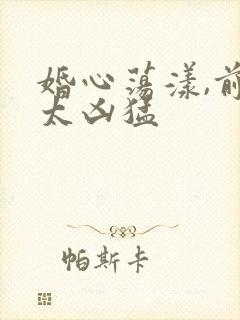 婚心荡漾,前
太凶猛
帕斯卡